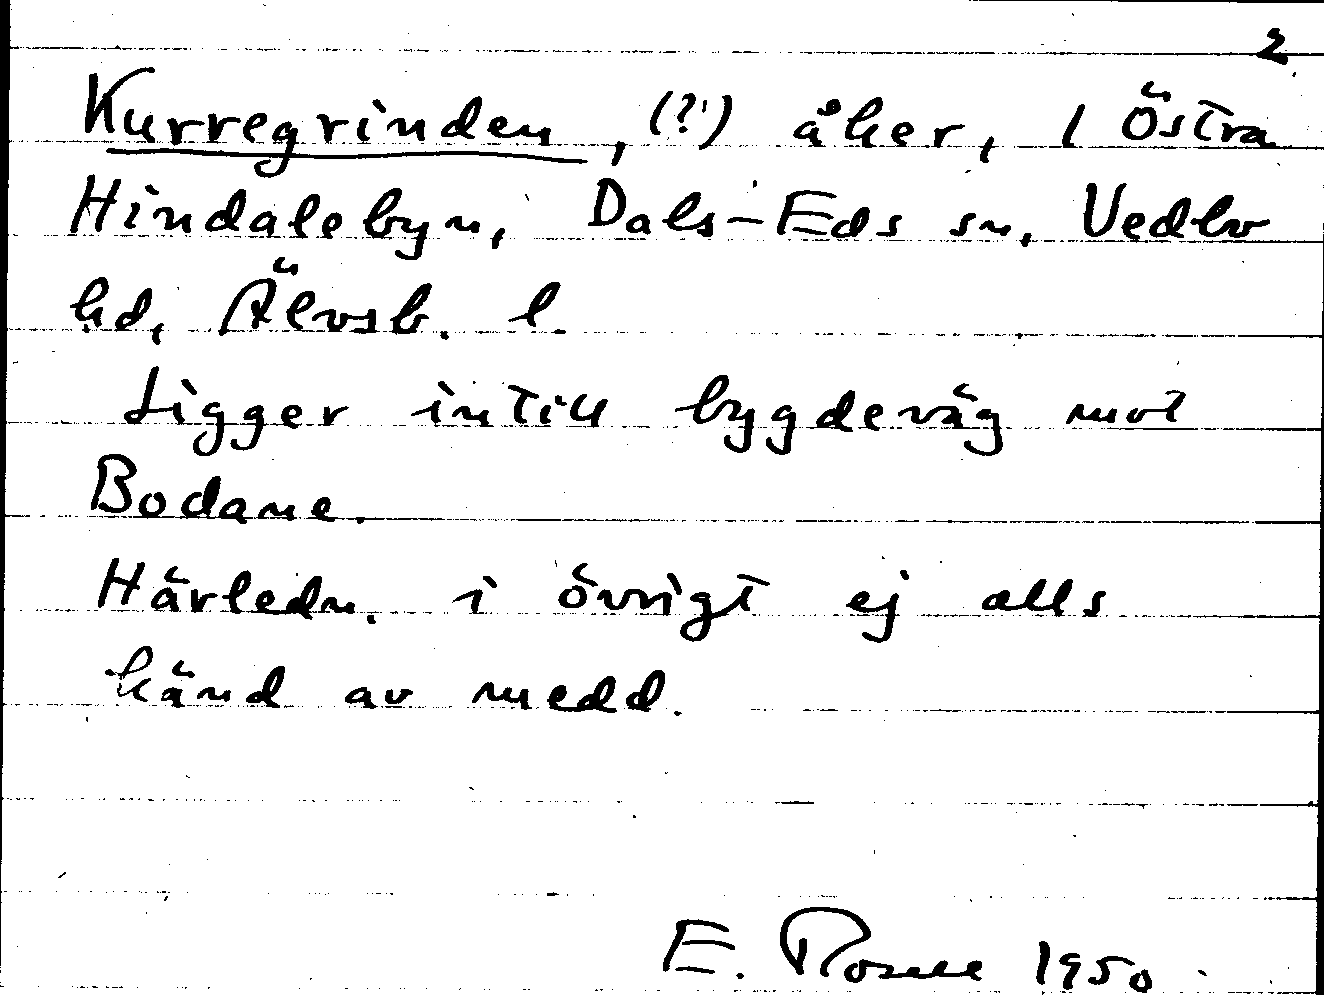 2
Kurregrinden, (?') åker, i Östra
Hindalebyn, Dals-Eds sn, Vedbo
hd, Älvsb. l.
Ligger intill bygdeväg mot
Bodane.
Härledn. i övrigt ej alls
känd av medd.
E. Rosell 1950